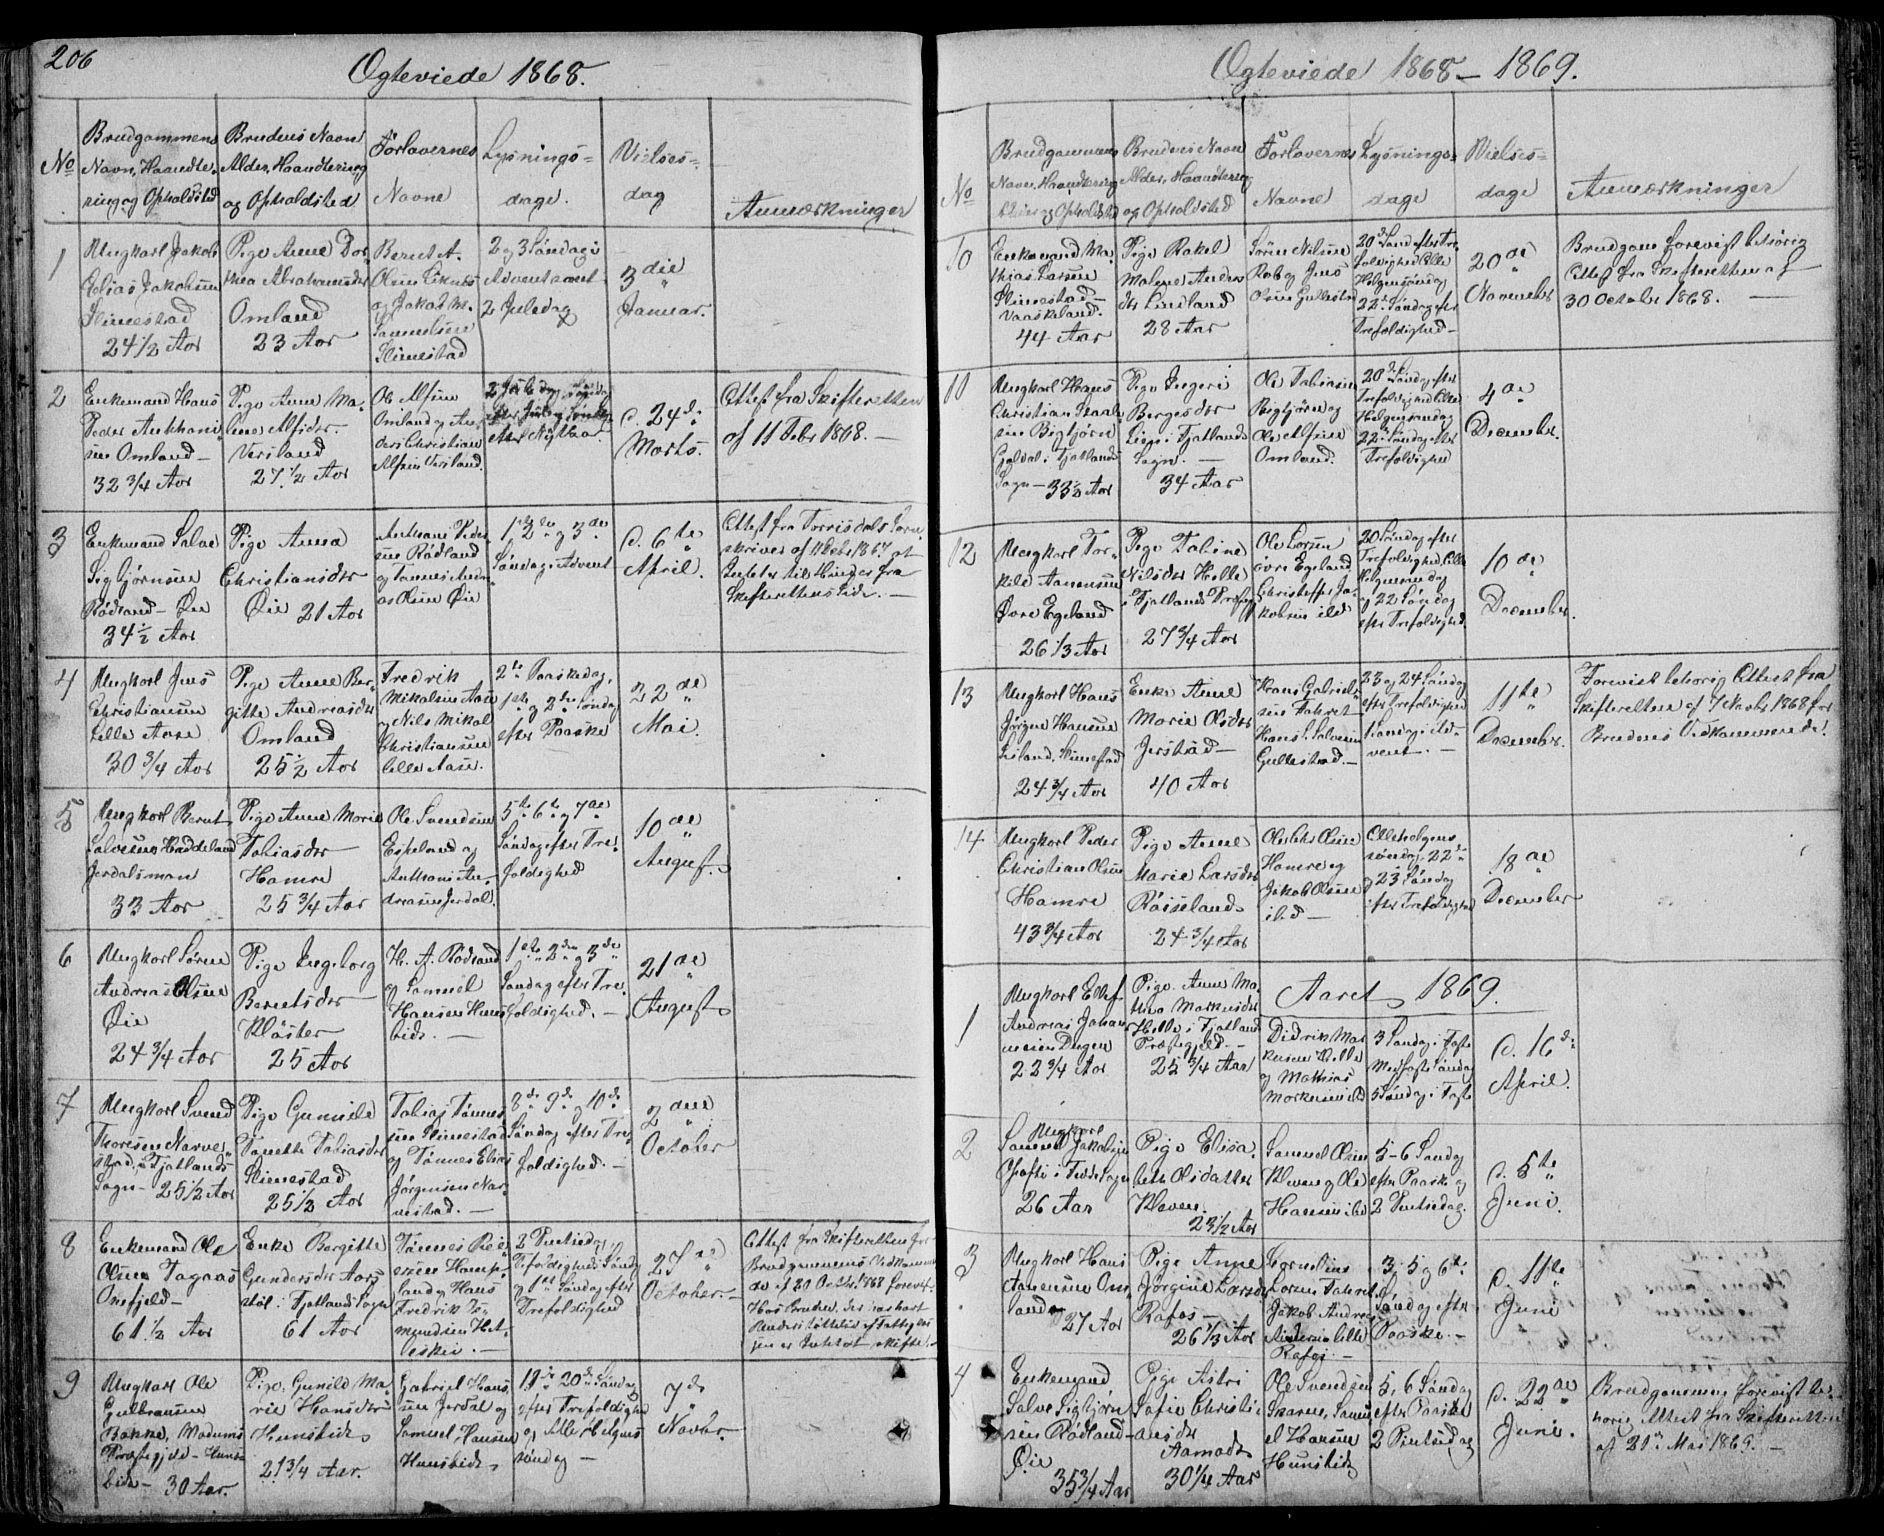 206
Ogteviede 1868.
No
Brudgommens
Navn, Haandte-
ring og Opholdsted
Brudens Navn
Alder, Haandtering
og Opholdsted
Forlovernes
Navne
Lysnings-
dage.
Vielses-
dag
Anmærkninger
1
Ungkarl Jakob
Elias Jakobsen
Stimestad
24 1/2 Aar
Pige Anne Dor-
thea Abrahamsdtr
Omland
23 Aar
Bernt A.
Olsen
og Jakob M.
Samuelsen
Stimestad
2 og 3 Søndag i
Advent samt
2 Juledag
3die
Januar.
2
Enkemand Hans
Peder Anthoni-
sen Omland
32 3/4 Aar
Pige Anne Ma-
lene Alfsdtr.
Versland
27 1/2 Aar
Ole Alfsen
Omland og An-
ders Christian
Alfsen Versland.
2 Juledag, Søndag
efter Nytaar.
d. 24de
Marts.
Attest fra Skifteretten
af 11 Febr 1868.
3
Enkemand Salve
Sigbjørnsen
Rødland - Øie
34 1/2 Aar
Pige Anna
Christiansdtr
Øie 21 Aar
Anthoni Peder-
sen Rødland
og Tønnes Andre-
as Olsen Øie
1ste 2den og 3de
Søndag i Advent
d. 6te
April.
Attest fra Torrisdals Soren-
skriver af 11 Febr 1867 at
Intet er til Hinder fra
Skifterettens Side.
4
Ungkarl Jens
Christiansen
Lille Aase
30 3/4 Aar
Pige Anne Ber-
gitte Andreasdtr
Omland
25 1/2 Aar
Fredrik
Mikalsen Aase
og Nils Mikal
Christiansen
lille Aase.
2den Paaskedag,
1ste og 2den Søndag
efter Paaske
22de
Mai.
5
Ungkarl Bernt
Salvesen Haddeland
Jerdalsmoen
33 Aar
Pige Anne Marie
Tobiasdtr
Hamre
25 3/4 Aar
Ole Svendsen
Eskeland og
Anthoni An-
dreasen Jerdal.
5te 6te og 7de
Søndag efter Tre-
foldighed
10de
August.
6
Ungkarl Søren
Andreas Olsen
Øie
24 3/4 Aar
Pige Ingeborg
Berntsdtr
Kløster
25 Aar
H. A. Rødland
og Samuel
Hansen Huns-
bide.
1ste 2den og 3de
Søndag efter Tre-
foldighed.
21de
August
7
Ungkarl Svend
Thoresen Narve-
stad, i Fjotlands
Sogn - 25 1/2 Aar
Pige Gunnild
Tonette Tobiasdtr
Stimestad
25 1/2 Aar
Tobias Tønnes-
sen Stimestad
og Tønnes Elias
Jørgensen Nar-
vestad.
8de 9de og 10de
Søndag efter Tre-
foldighed.
2den
October
8
Enkemand Ole
Olsen Tagaas
Onefjeld
61 1/2 Aar
Enke Bergitte
Gundersdtr Aars-
støl i Fjotland Sogn
61 Aar
Tønnes Rei-
ersen Hamp-
land og Hans
Fredrik Os-
mundsen Het-
veskei.
2 Pintsedag,
Trefoldigheds Søndag
og 1ste Søndag efter
Trefoldighed
27de
October
Attest fra Skifteretten for
Brudgommens Vedkommen-
de af 20 Octbr. 1868 forevist.
9
Ungkarl Ole
Gulbransen
Bakke, Modums
Præstegjeld - Huns-
bide - 30 Aar.
Pige Gunild Ma-
rie Hansdtr
Hunsbide
21 3/4 Aar.
Gabriel Hans-
sen Jerdal og
Samuel Hansen
Hunsbide
19de 20de Søndag
efter Trefoldighed
og Alle Helgens
søndag
7de
Novbr.
Ogteviede 1868 - 1869.
No
Brudgommens
Navn, Haandtering
Alder og Opholdsted
Brudens Navn
Alder, Haandtering
og Opholdsted
Forlovernes
Navne
Lysnings-
dage
Vielses-
dage
Anmærkninger
10
Enkemand Ma-
thias Larsen
Stimestad -
Vaaskeland.
44 Aar
Pige Rakel
Malene Anders
dtr Lindland
28 Aar
Søren Nilsen
Rob og Jens
Olsen Gullestad
20de Sønd efter Tre-
foldighed Alle
Helgensøndag
22de Søndag efter
Trefoldighed
20de
November
Brudgom forevist behørig
Attest fra Skifteretten af
30 October 1868.
11
Ungkarl Hans
Christian
sen Bigtjørn
i Fjotlands
Sogn - 33 1/2 Aar
Pige Ingeri
Bergesdtr
Liene i Fjotlands
Sogn.
34 Aar
Ole Tobiasen
Bigtjørn og
Ole Alfsen
Omland.
20de Søndag efter
Trefoldighed Alle
Helgensøndag
22de Søndag efter
Trefoldighed
4de
December.
12
Ungkarl Tor-
kild Aanensen
Øvre Egeland
26 1/3 Aar
Pige Tobine
Nilsdtr Helle
i Fjotlands Præstegj
27 3/4 Aar
Ole Larsen
øvre Egeland
Christoffer Ja-
kobsen ibd
20 Søndag efter
Trefoldighed Alle
Helgensøndag
og 22 Søndag
efter Trefoldighed.
10de
December.
13
Ungkarl Hans
Jørgen Hansen
Eiland, Stimestad
24 3/4 Aar
Enke Anne
Marie Olsdtr
Jerstad
40 Aar
Hans Gabriel-
sen Fahret
Hans Salvesen
Gullestad.
23 og 24 Søndag
efter Trefoldighed
1 Søndag i Ad-
vent.
11te
December.
Forevist behørig Attest fra
Skifteretten af 7 Novbr 1868 for
Brudens Vedkommende.
14
Ungkarl Peder
Christian Olsen
Hamre
43 3/4 Aar
Pige Anne
Marie Larsdtr
Røiseland
24 3/4 Aar
Ole Olsen
Hamre og
Jakob Olsen
ibd
Allehelgens
søndag, 22de
og 23 Søndag
efter Trefoldighed
18de
December
Aaret 1869.
1
Ungkarl Ellef
Andreas Johan
nesen Dugen
22 3/4 Aar
Pige Anne Ma-
thea Markusdtr
Helle i Fjotland
Præstegjeld.
25 3/4 Aar
Didrik Mar-
kusen Helle
og Mathias
Markusen ibd
3 Søndag i Faste
Midfaste Søndag
5 Søndag i Faste
d. 16de
April.
2
Ungkarl
Samuel Jakobsen
Ofstfti i Fede Sogn
26 Aar
Pige Elisa-
beth Olsdatter
Kleven
23 1/2 Aar
Samuel Olsen
Kleven og Ole
Hansen ibd
5-6 Søndag
efter Paaske og
2 Pintsedag.
d. 5te
Juni.
3
Ungkarl Hans
Aanensen Om-
land
27 Aar
Pige Anne
Jørgine Larsdtr
Rafos
26 1/3 Aar
Cornelius
Larsen Fahret
Jakob Andreas
Andersen lille
Rafos.
3, 5 og 6te
Søndag efter
Paaske.
d. 11te
Juni
4
Enkemand
Salve Sigbjørn-
sen Rødland
Øie
35 3/4 Aar
Pige Astri
Sofie Christi-
ansdtr
Aamodt
30 1/4 Aar
Ole Svendsen
Skaren, Samu-
el Hansen
Hunsbide
5, 6 Søndag
efter Paaske
2 Pintsedag
d. 22de
Juni.
Brudgommen forevist be-
hørig Attest fra Skifteretten
af 21de Mai 1869.